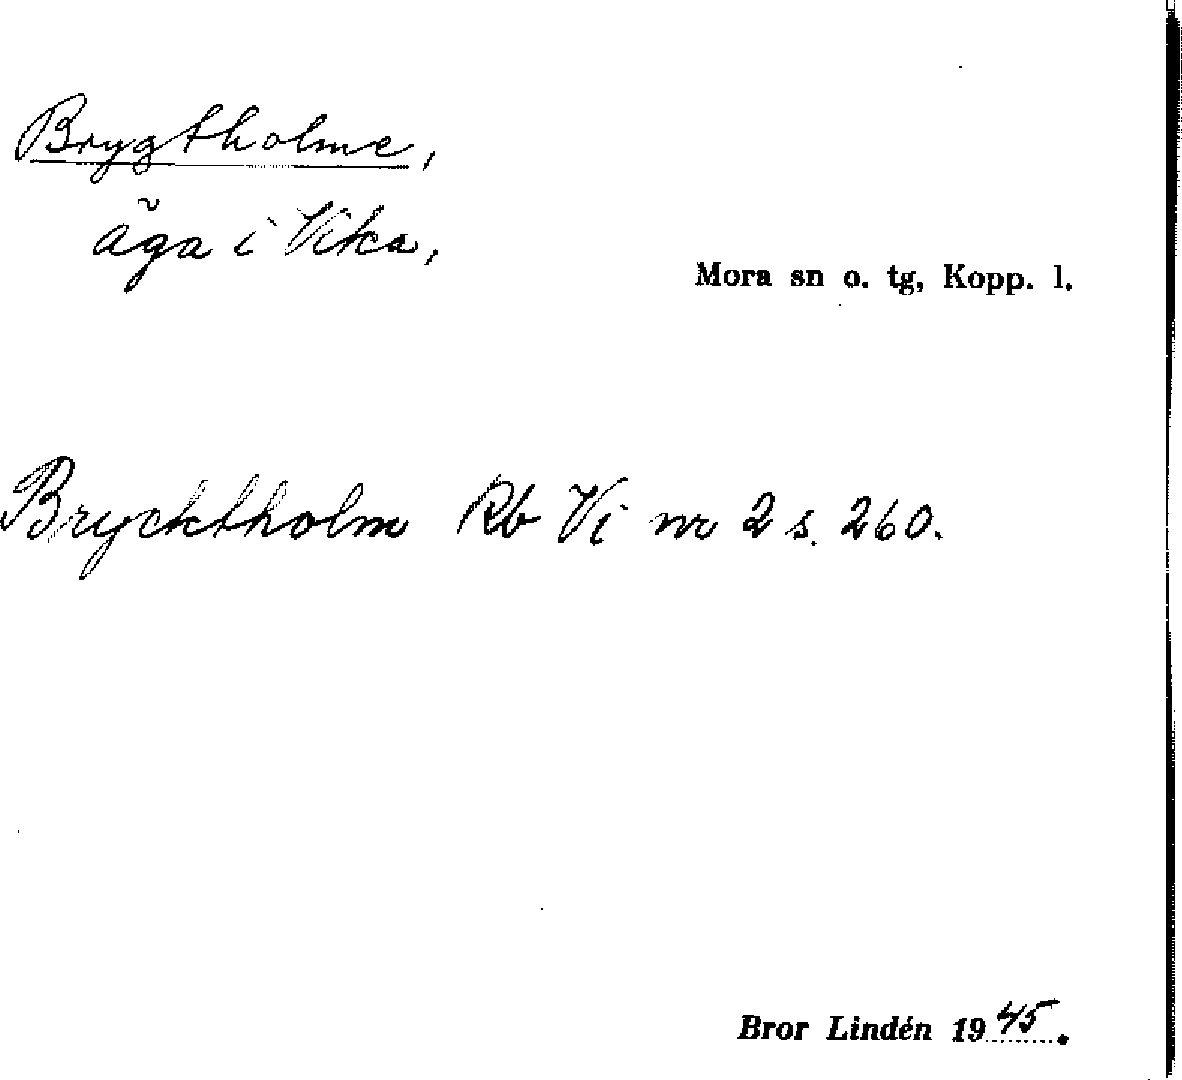 Brygtholme,
äga i Vika,
Mora sn o. tg, Kopp. l.
Brycktholm Rb Vi nr 2 s. 260.
Bror Lindén 1945.